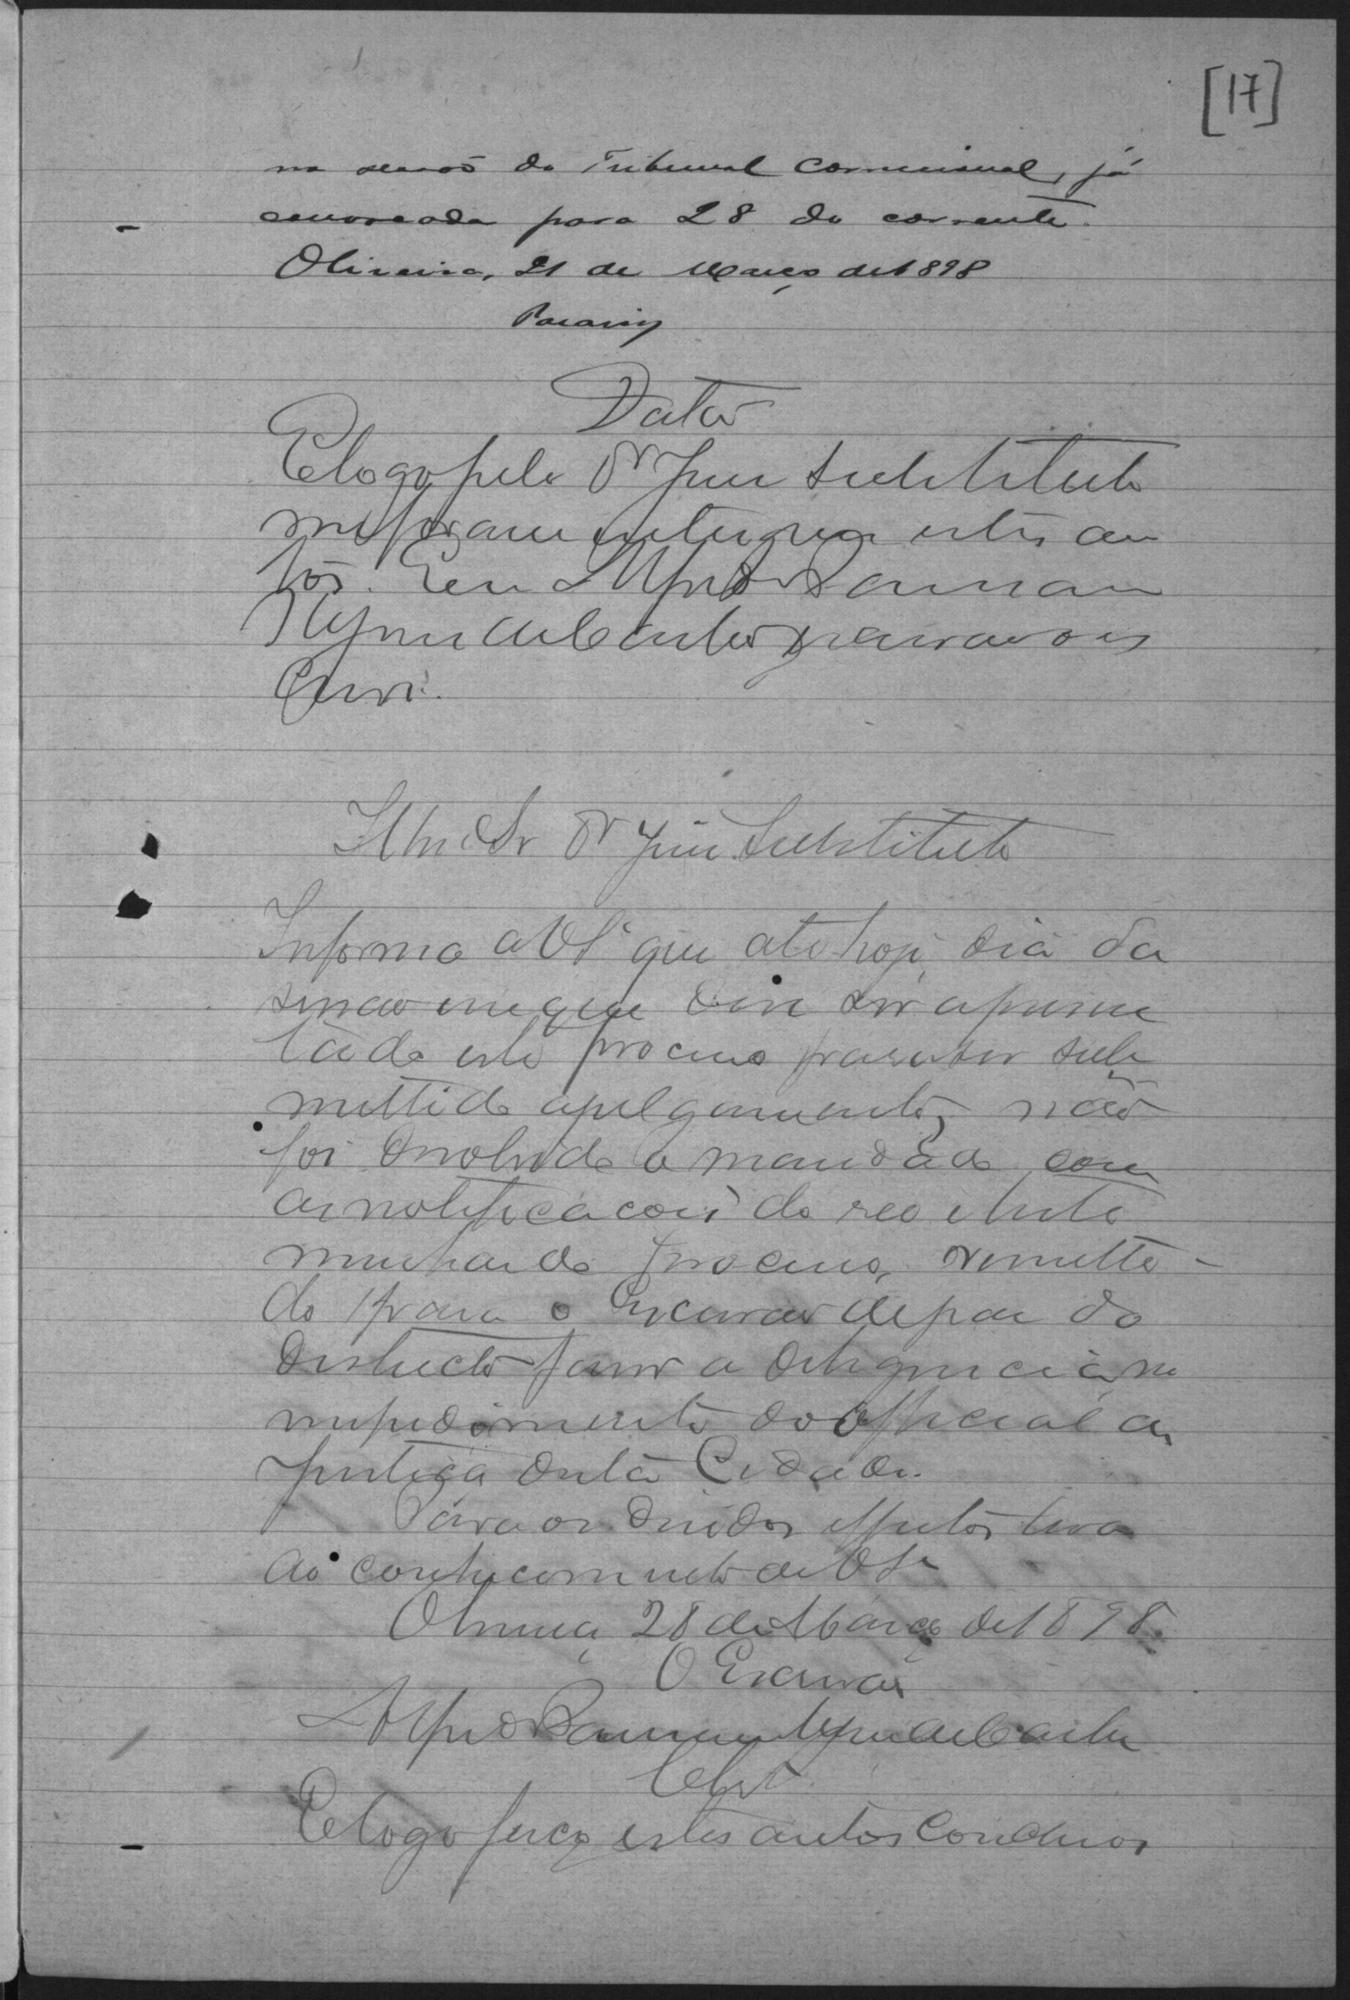 [17]
na sessão do Tribunal Correccional, já
convocada para 28 do corrente.
Oliveira, 21 de Março de 1898
Data
E logo pelo Dr Juiz Substituto
me foram entregues estes au
tos. Eu Alfredo
de Castro escrivão o es
crevi.
Illmo Sr Dr Juiz Substituto
Informo a V Sª que ate hoje, dia da
sessão em que devia ser apresen
tado este processo para ser sub
mettido a julgamento, não
foi devolvido o mandado com
as notificacões do reo e teste
munhas do processo, remetti
do para o Escrivão de paz do
districto fazer a deligencia no
impedimento do official de
justiça desta Cidade.
Para os devidos effeitos levo
ao conhecimento de V Sª
Oliveira, 28 de Março de 1898.
O Escrivão
Alfredo de Castro
Clsº
E logo faço estes autos conclusos